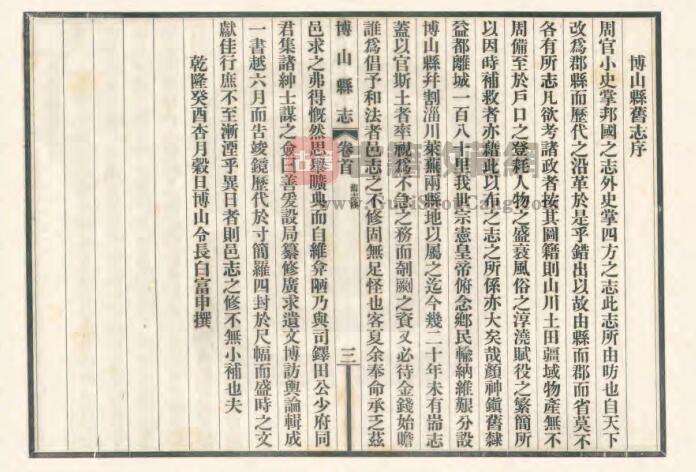 博山縣舊志序
周官小史掌邦國之志外史掌四方之志此志所由昉也自天下
改爲郡縣而歷代之沿革於是乎錯出以故由縣而郡而省莫不
各有所志凡欲考諸政者按其圖籍則山川土田疆域物產無不
周備至於戶口之登耗人物之盛衰風俗之淳澆賦役之繁簡所
以因時補救者亦藉此以作之志之所係亦大矣哉顏神鎮舊隸
益都離城一百八十里我世宗憲皇帝俯念鄉民輸納維艱分設
博山縣幷割淄川萊蕪兩縣地以屬之迄今幾二十年未有耑志
蓋以官斯土者率視爲不急之務而剞劂之資又必待金錢始贍
誰爲倡予和法者邑志之不修固無足怪也客夏余奉命承乏茲
博山縣志
卷首
舊志序
三
邑求之弗得慨然思舉曠典而自維弇陋乃與司鐸田公少府同
君集諸紳士謀之僉曰善爰設局纂修廣求遺文博訪輿論輯成
一書越六月而告竣鏡歷代於寸簡羅四封於尺幅而盛時之文
獻佳行庶不至漸湮乎異日者則邑志之修不無小補也夫
乾隆癸酉杏月穀旦博山令長白富申撰